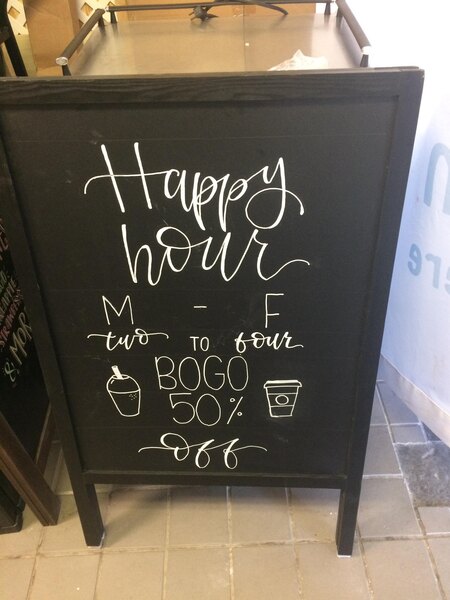 Happy
hour
M - F
two TO four
BOGO
50%
off
& MORE